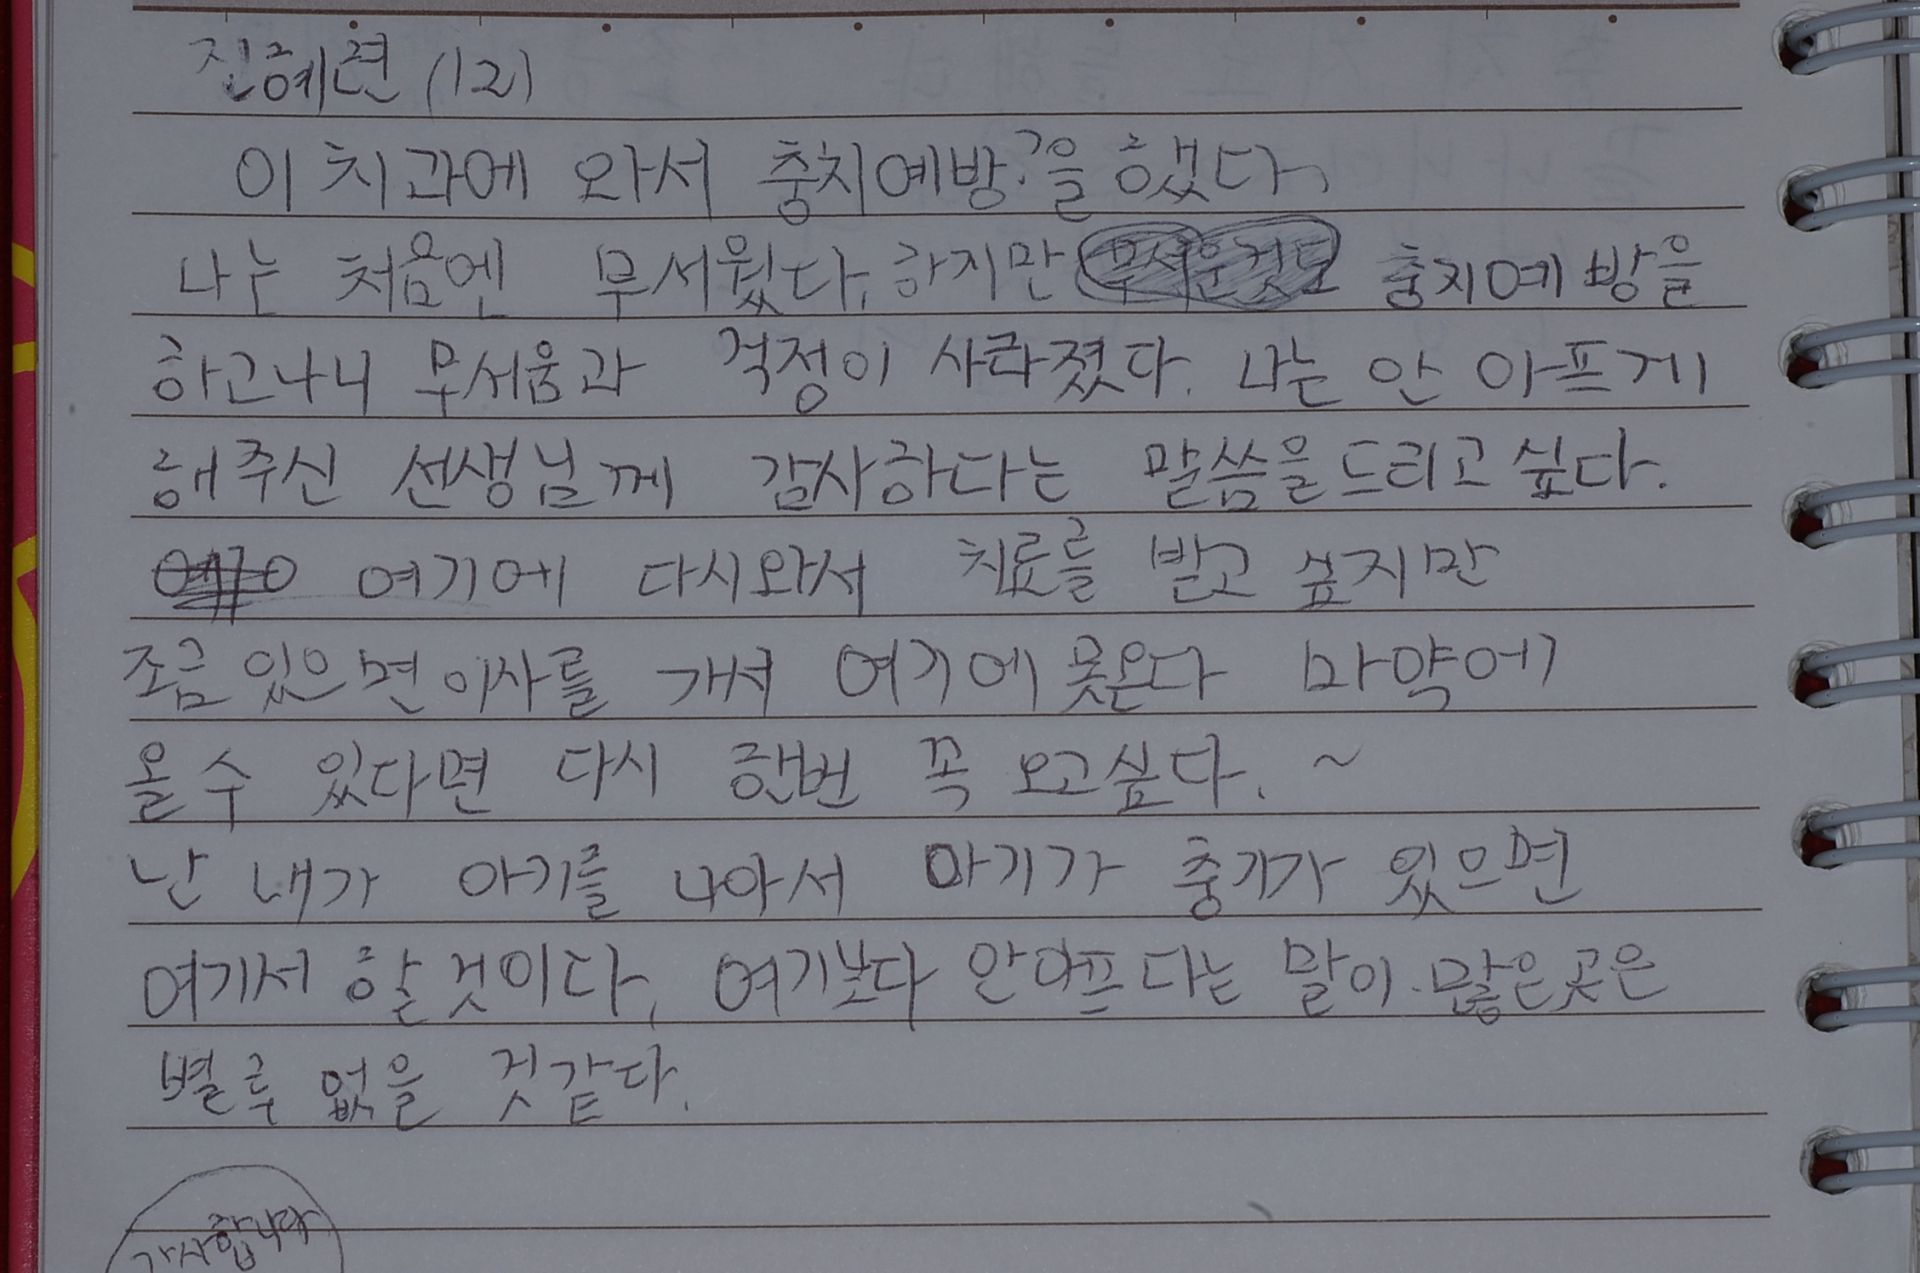 진혜련 (12)
이 치과에 와서 충치예방?을 했다.
나는 처음엔 무서웠다. 하지만 충치예방을
하고나니 무서움과 걱정이 사라졌다. 나는 안 아프게
해주신 선생님께 감사하다는 말씀을드리고싶다.
여기에 다시와서 치료를 받고 싶지만
조금있으면 이사를 가서 여기에 못온다 마약에
올수 있다면 다시 한번 꼭 오고싶다. ~
난 내가 아기를 나아서 아기가 충기가 있으면
여기서 할것이다. 여기보다 안아프다는 말이 많은곳은
별루 없을 것같다.
감사합니다